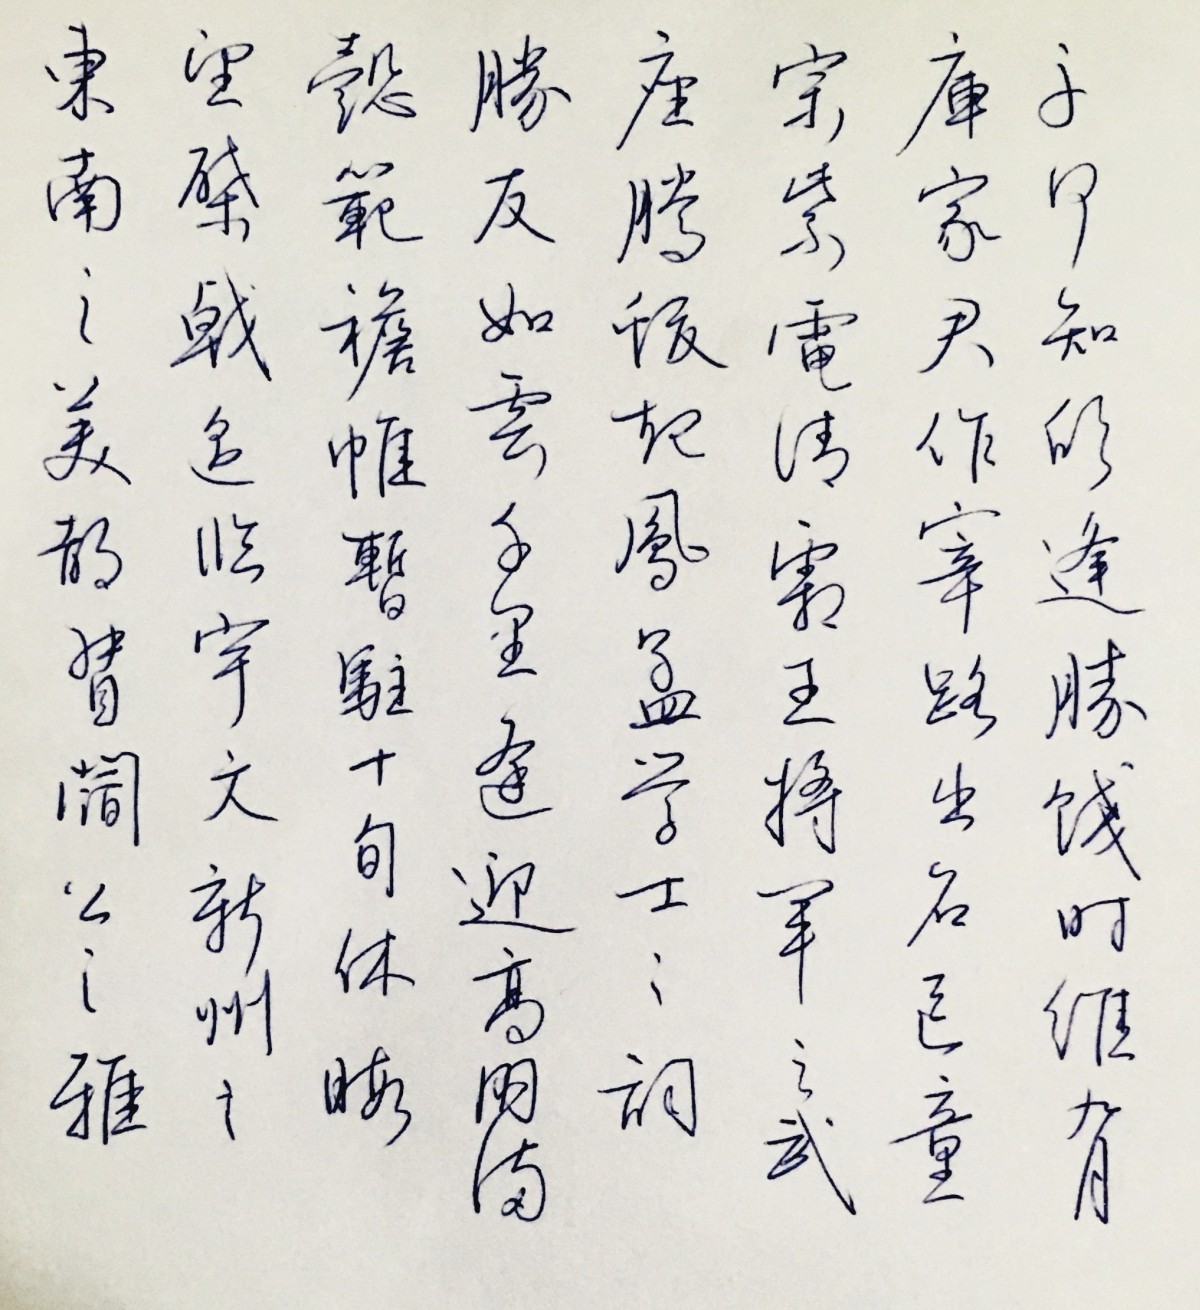 東南之美都督閻公之雅
望棨戟遥临宇文新州之
懿範襜帷暫駐十旬休暇
勝友如雲千里逢迎高朋满
座騰蛟起鳳孟学士之詞
宗紫電清霜王将军之武
庫家君作宰路出名区童
子何知躬逢勝餞时维九月